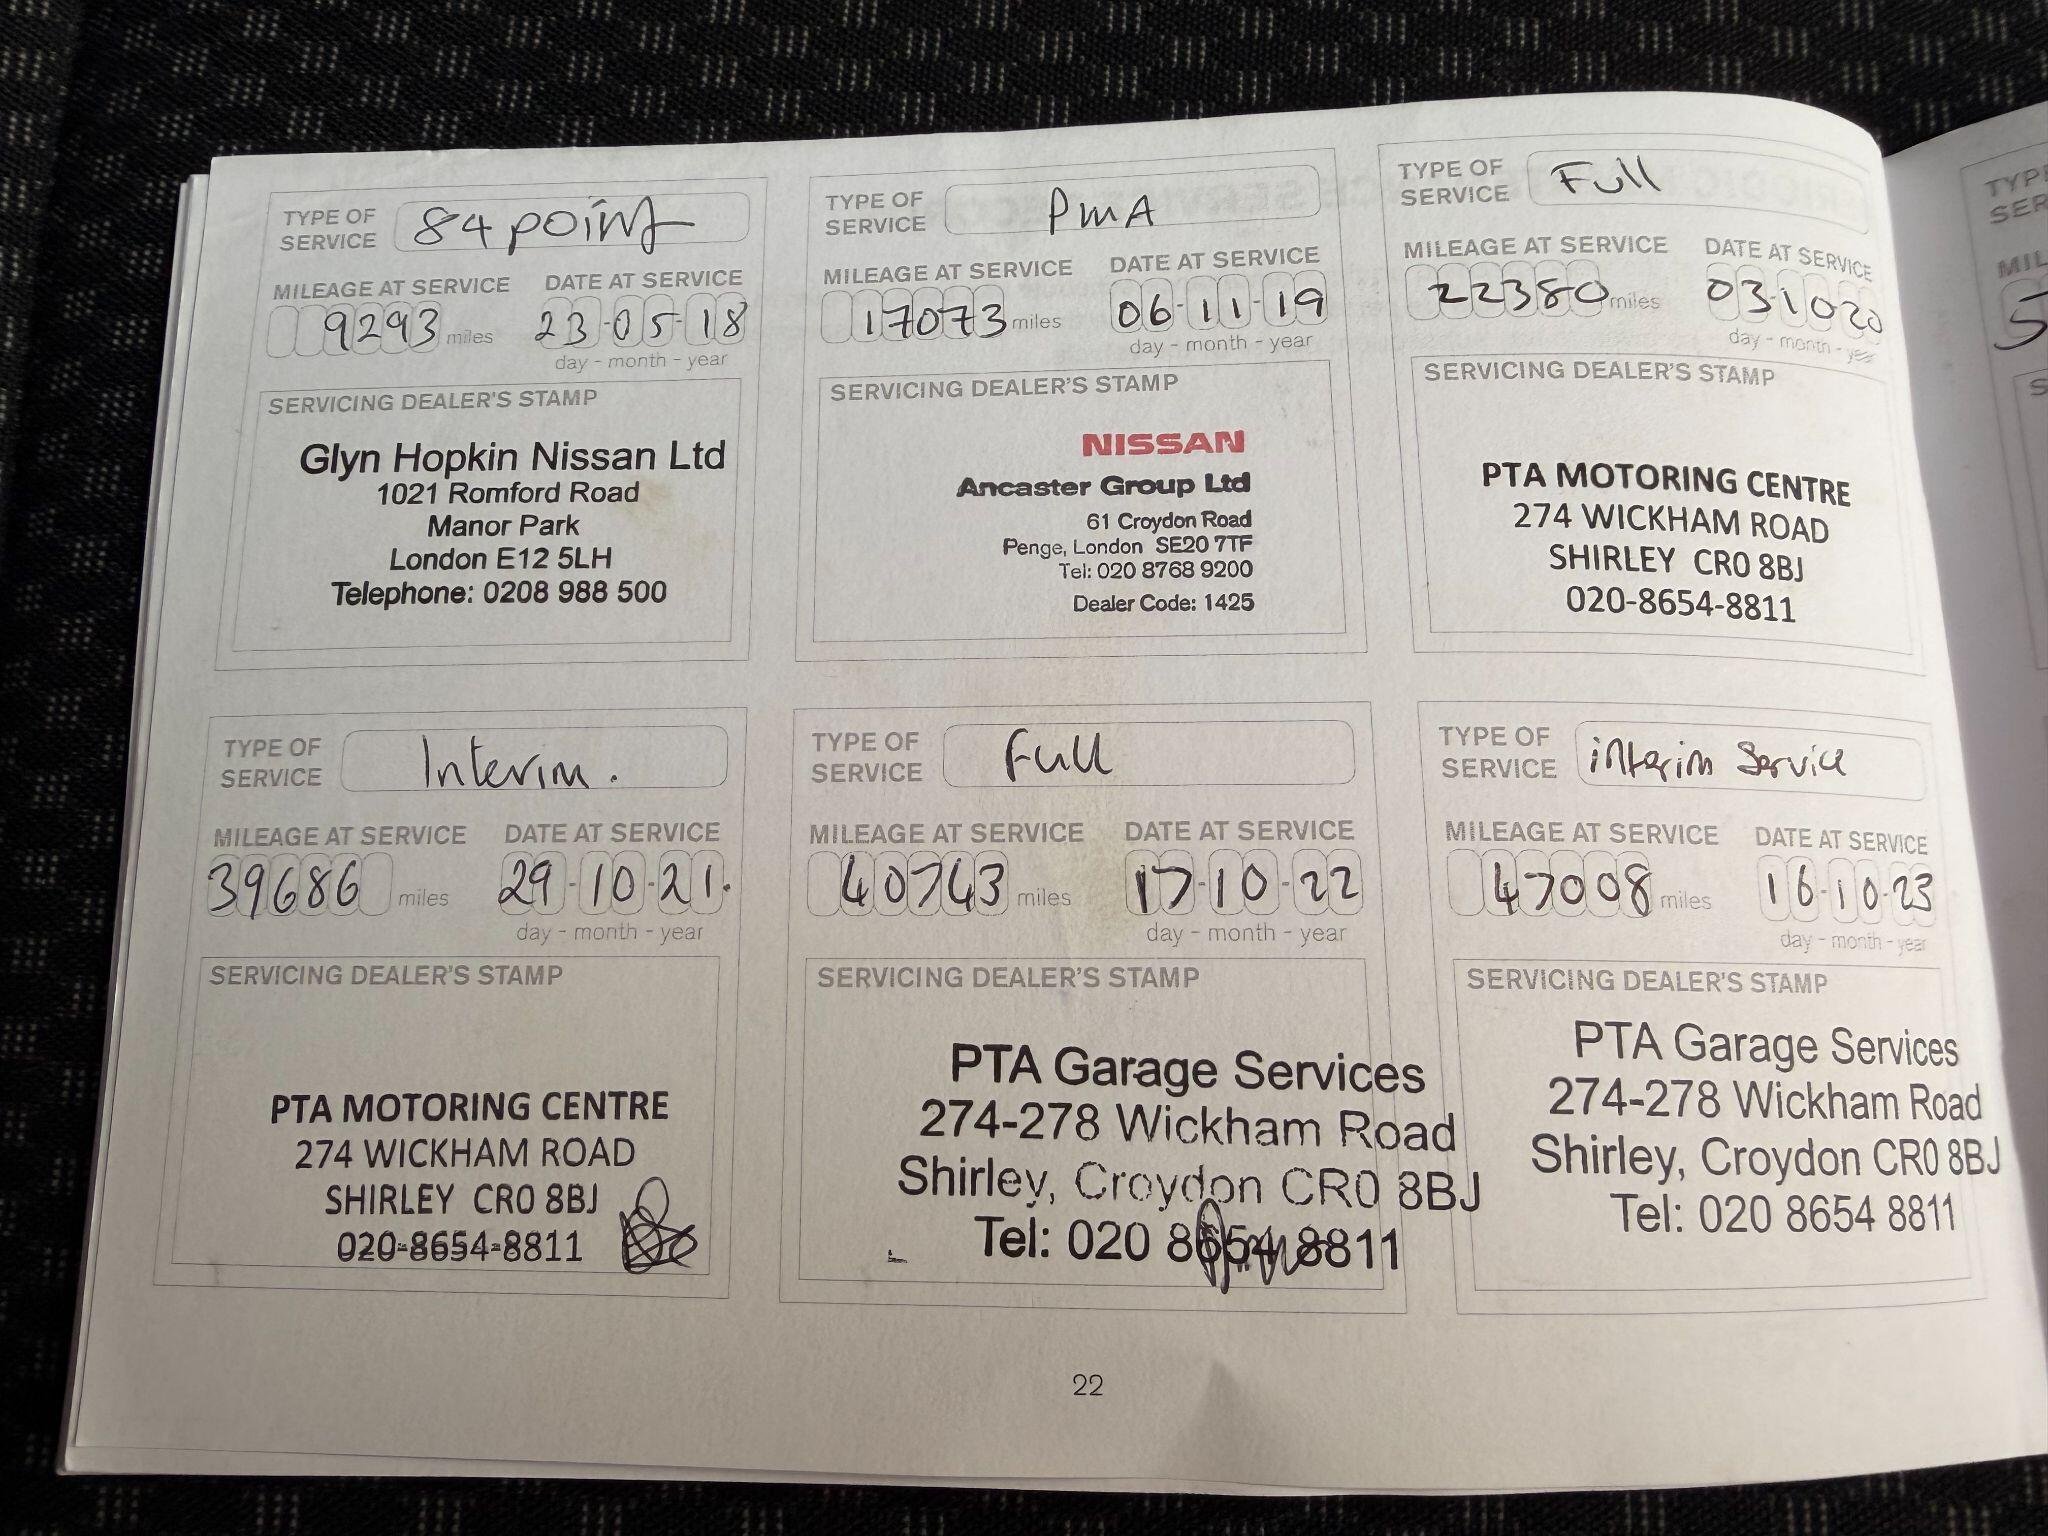 TYPE OF SERVICE 84 point
MILEAGE AT SERVICE DATE AT SERVICE
9293 miles 23-05-18
day - month - year
SERVICING DEALER'S STAMP
Glyn Hopkin Nissan Ltd
1021 Romford Road
Manor Park
London E12 5LH
Telephone: 0208 988 500
TYPE OF SERVICE PMA
MILEAGE AT SERVICE DATE AT SERVICE
17073 miles 06-11-19
day - month - year
SERVICING DEALER'S STAMP
NISSAN
Ancaster Group Ltd
61 Croydon Road
Penge, London SE20 7TF
Tel: 020 8768 9200
Dealer Code: 1425
TYPE OF SERVICE Full
MILEAGE AT SERVICE DATE AT SERVICE
22380 miles 03-10 20
day - month - year
SERVICING DEALER'S STAMP
PTA MOTORING CENTRE
274 WICKHAM ROAD
SHIRLEY CR0 8BJ
020-8654-8811
TYPE OF SERVICE Interim.
MILEAGE AT SERVICE DATE AT SERVICE
39686 miles 29-10-21.
day - month - year
SERVICING DEALER'S STAMP
PTA MOTORING CENTRE
274 WICKHAM ROAD
SHIRLEY CR0 8BJ
020-8654-8811
TYPE OF SERVICE Full
MILEAGE AT SERVICE DATE AT SERVICE
40743 miles 17-10-22
day - month - year
SERVICING DEALER'S STAMP
PTA Garage Services
274-278 Wickham Road
Shirley, Croydon CR0 8BJ
Tel: 020 8654 8811
TYPE OF SERVICE interim Service
MILEAGE AT SERVICE DATE AT SERVICE
47008 miles 16-10-23
day - month - year
SERVICING DEALER'S STAMP
PTA Garage Services
274-278 Wickham Road
Shirley, Croydon CR0 8BJ
Tel: 020 8654 8811
22